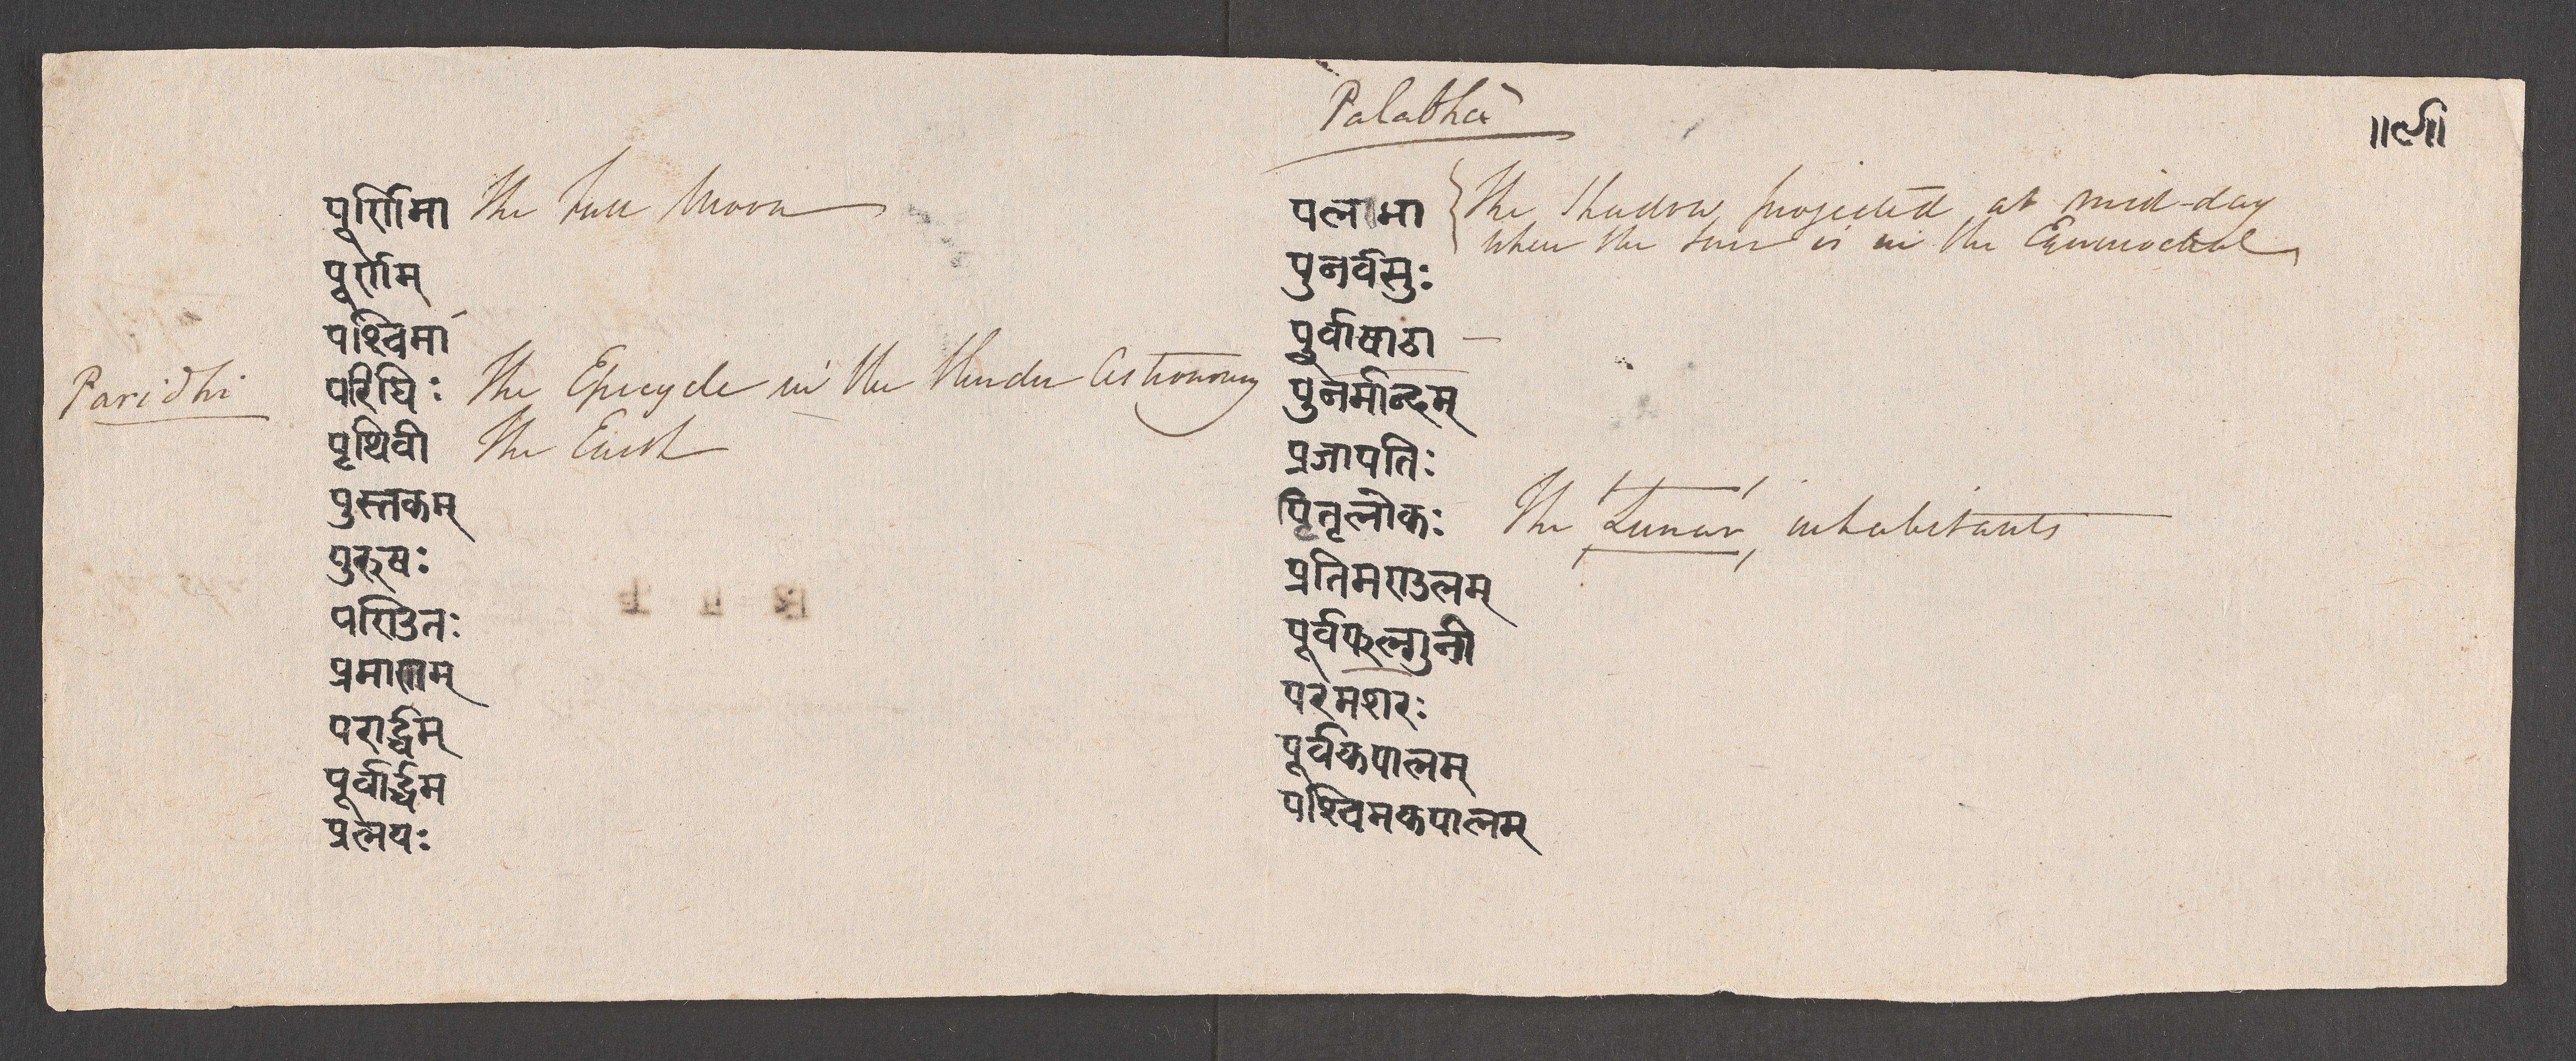 Palabhā
॥९॥
पूर्णिमा The Full Moon
पूर्णम्
पश्चिमा
Paridhi परिधिः The Epicycle in the Hindu Astronomy
पृथिवी The Earth
पुस्तकम्
पुरुषः
पण्डितः
प्रमाणम्
परार्द्धम्
पूर्वार्द्धम
प्रलयः
पलाभा { The Shadow projected at mid-day
when the Sun is in the Equinoctial
पुनर्वसुः
पूर्वाषाठा
पुनर्मान्दम्
प्रजापतिः
पितृलोकः The Lunar inhabitants
प्रतिमण्डलम्
पूर्वफल्गुनी
परमशरः
पूर्वकपालम्
पश्चिमकपालम्